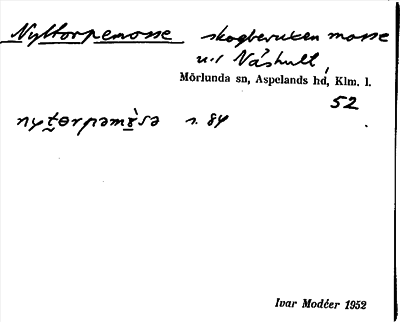 Nyttorpemosse skogberuxen mosse
u. / Näshult,
Mörlunda sn, Aspelands hd, Klm. l.
52
s. 84
Ivar Modéer 1952